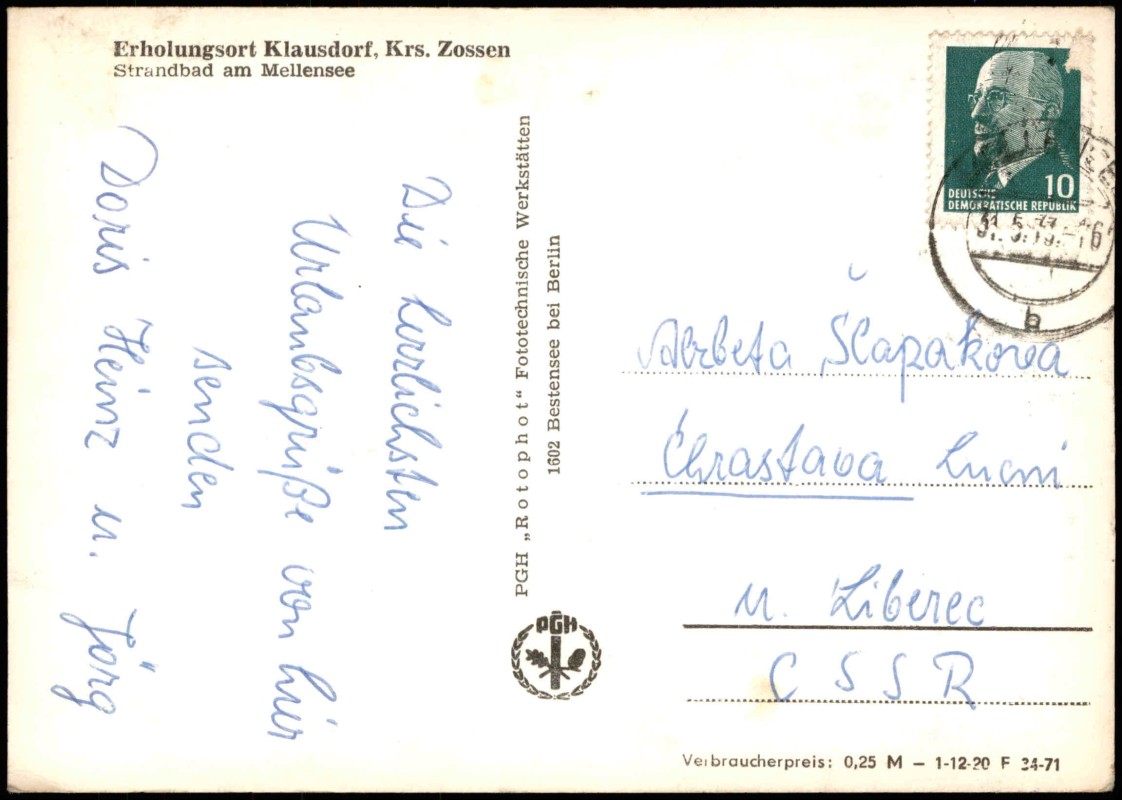 Erholungsort Klausdorf, Krs. Zossen
Strandbad am Mellensee
Die herzlichsten
Urlaubsgrüße von hier
senden
Doris Heinz u. Jörg
PGH „Rotophot“ Fototechnische Werkstätten
1602 Bestensee bei Berlin
PGH
10
DEUTSCHE
DEMOKRATISCHE REPUBLIK
b
Alzbeta Šlapakova
Chrastava
u. Liberec
CSSR
Verbraucherpreis: 0,25 M – 1-12-20 F 34-71